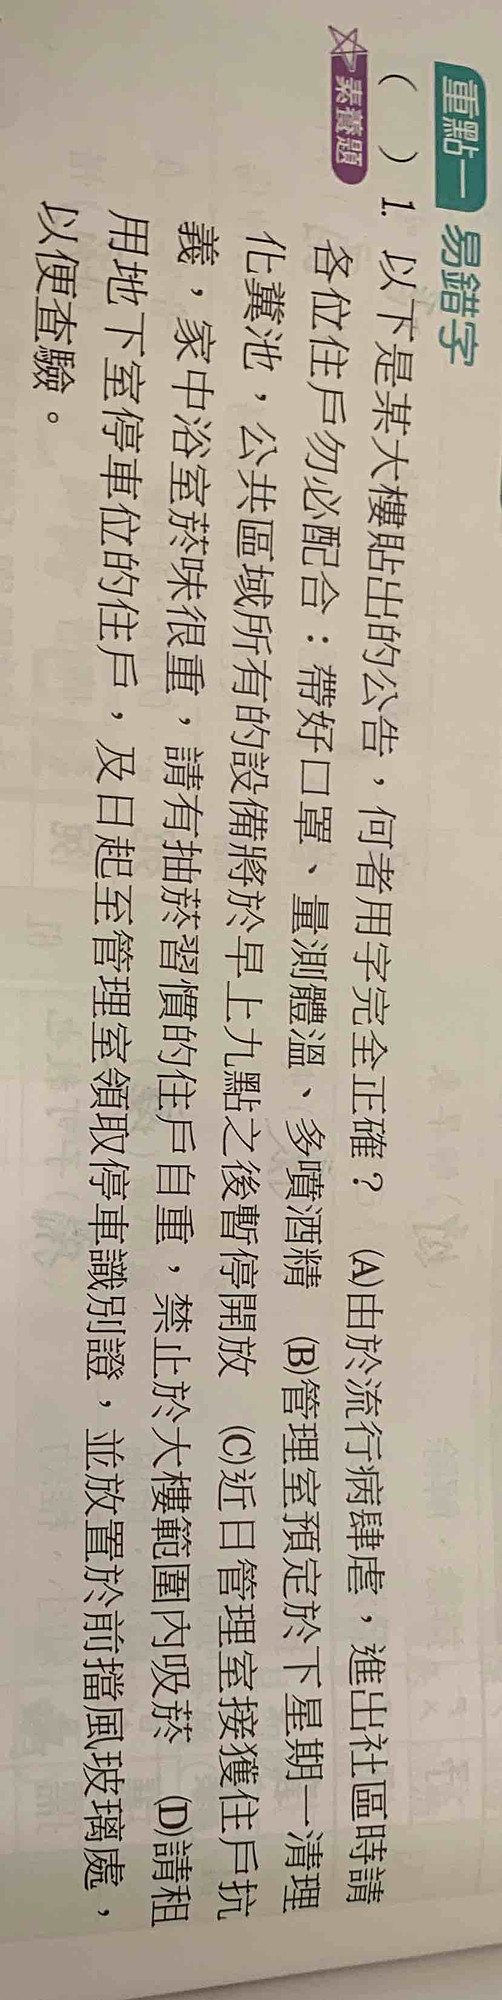 重點一 易錯字
素養題
(　)1. 以下是某大樓貼出的公告，何者用字完全正確？ (A)由於流行病肆虐，進出社區時請
各位住戶勿必配合：帶好口罩、量測體溫、多噴酒精 (B)管理室預定於下星期一清理
化糞池，公共區域所有的設備將於早上九點之後暫停開放 (C)近日管理室接獲住戶抗
義，家中浴室菸味很重，請有抽菸習慣的住戶自重，禁止於大樓範圍內吸菸 (D)請租
用地下室停車位的住戶，及日起至管理室領取停車識別證，並放置於前擋風玻璃處，
以便查驗。